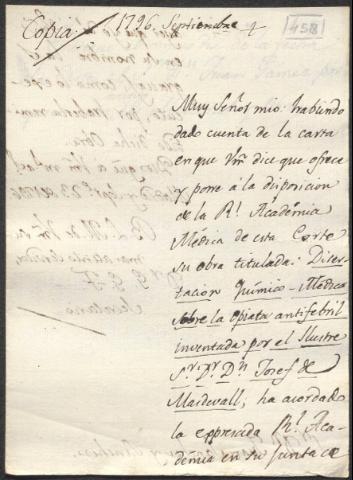 Copia
1796 Septiembre 4
458
Muy Señor mio: habiendo
dado cuenta de la carta
en que Vm dice que ofrece
y pone á la disposicion
de la Rl. Académia
Médica de esta Corte
su obra titulada: Diser-
tacion Químico-Médica
sobre la opiata antifebril
inventada por el Ilustre
Sr. Dr. Dn. Josef de
Masdevall; ha acordado
la expresada Rl. Aca-
démia en su Junta de